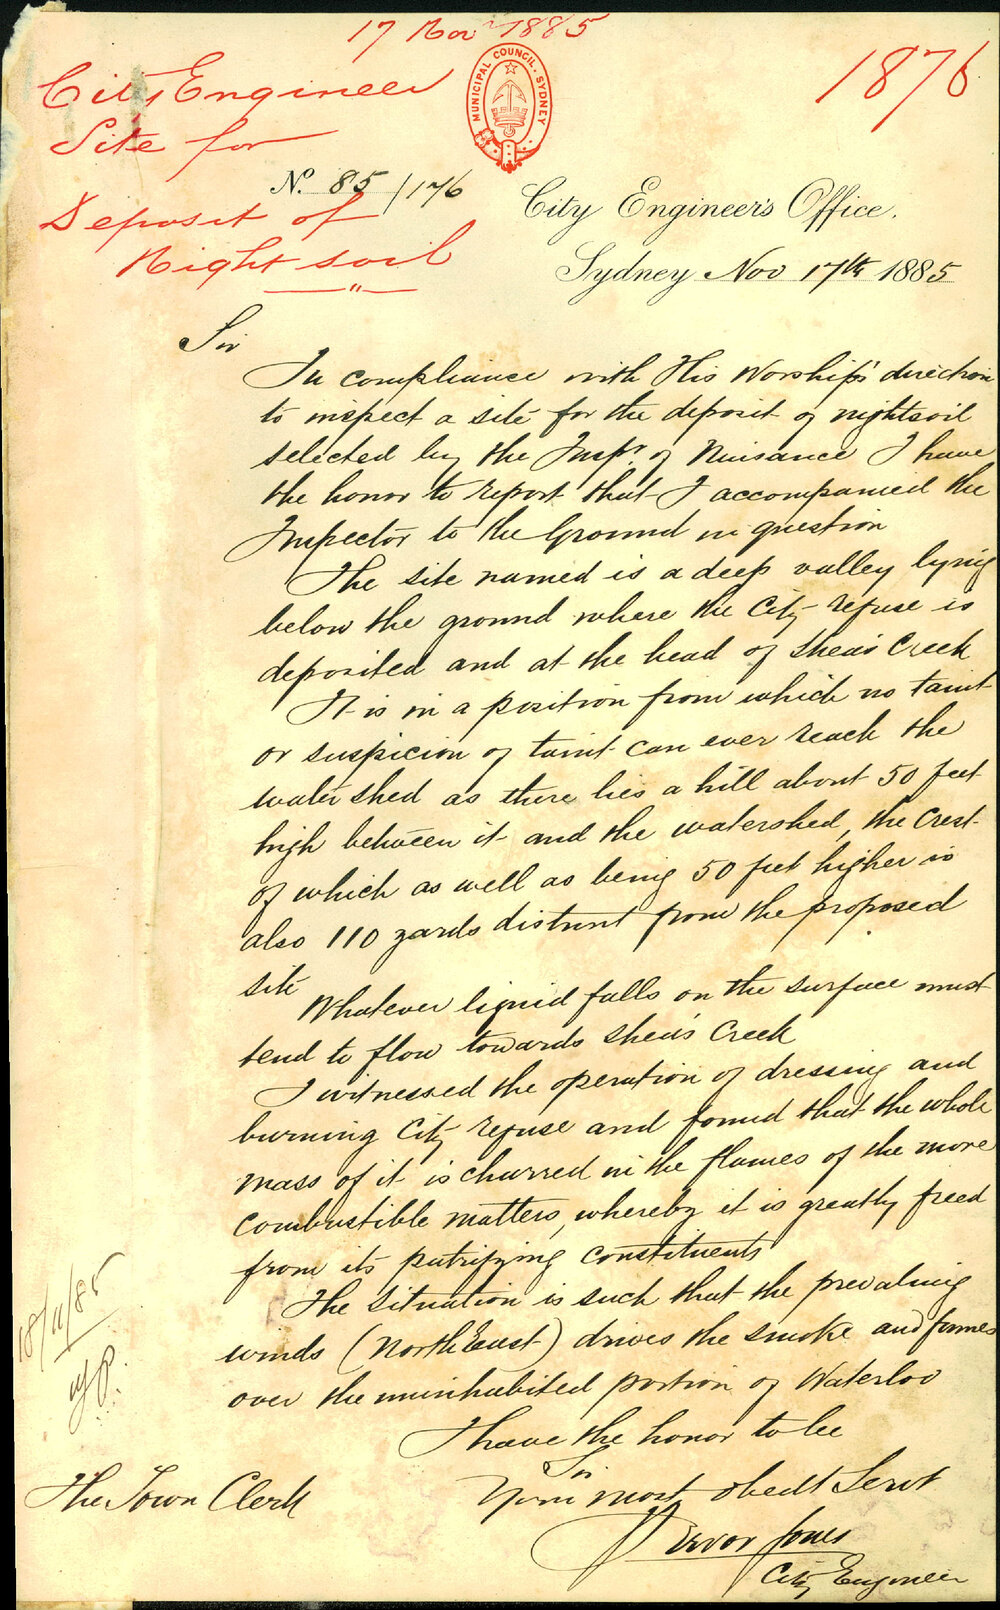 17 Nov 1885
1876
City Engineer
Site for
Deposit of
Nightsoil
MUNICIPAL COUNCIL · SYDNEY
No. 85/176
City Engineer's Office.
Sydney Nov 17th 1885
Sir
In compliance with His Worship's direction
to inspect a site for the deposit of nightsoil
selected by the Inspr. of Nuisance I have
the honor to report that I accompanied the
Inspector to the Ground in question
The site named is a deep valley lying
below the ground where the City refuse is
deposited and at the head of Shea's Creek
It is in a position from which no taint
or suspicion of taint can ever reach the
watershed as there lies a hill about 50 feet
high between it and the watershed, the Crest
of which as well as being 50 feet higher is
also 110 yards distant from the proposed
site
Whatever liquid falls on the surface must
tend to flow towards Shea's Creek
I witnessed the operation of dressing and
burning City refuse and found that the whole
mass of it is charred in the flames of the more
combustible matters, whereby it is greatly freed
from its putrifying constituents
The situation is such that the prevaling
winds (North East) drives the smoke and fumes
over the uninhabited portion of Waterloo
I have the honor to be
Sir
Your most obedt Servt
Trevor Jones
City Engineer
The Town Clerk
18/11/85